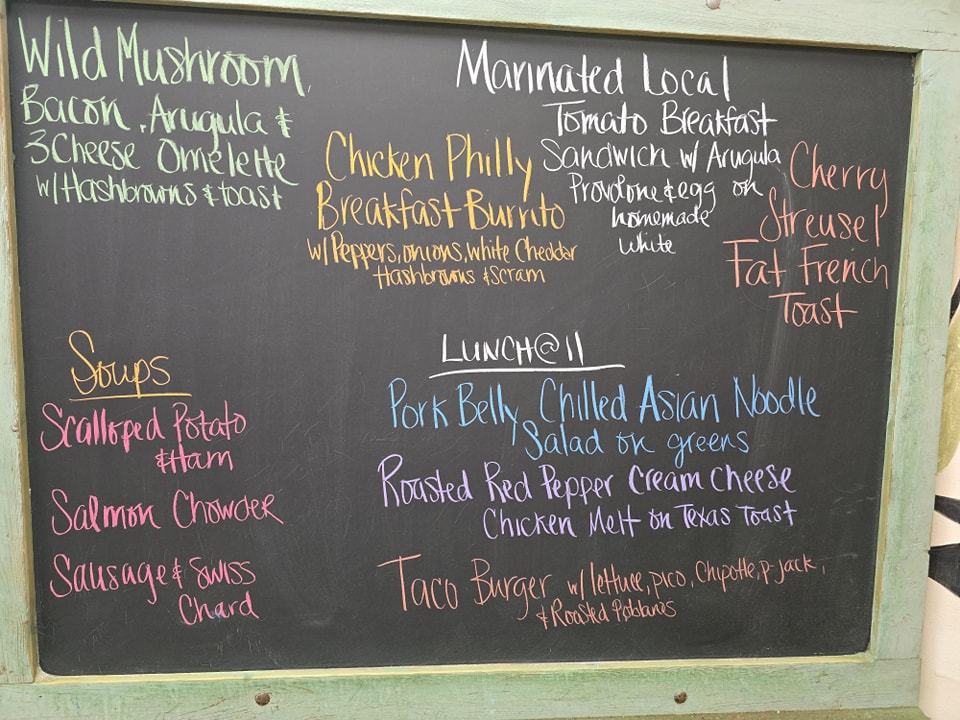 Wild Mushroom,
Bacon, Arugula &
3 Cheese Omelette
w/Hashbrowns & toast
Chicken Philly
Breakfast Burrito
w/ Peppers, onions, white Cheddar
Hashbrowns & Scram
Marinated Local
Tomato Breakfast
Sandwich w/ Arugula
Provolone & egg on
homemade
white
Cherry
Streusel
Fat French
Toast
Soups
Scalloped Potato
& Ham
Salmon Chowder
Sausage & Swiss
Chard
LUNCH@11
Pork Belly Chilled Asian Noodle
Salad on greens
Roasted Red Pepper Cream Cheese
Chicken Melt on Texas Toast
Taco Burger w/ lettuce, pico, Chipotle, p-jack,
& Roasted Poblanos